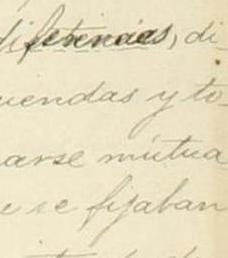 diferencias, di-
uendas y to-
arse mútua
e se fijaban